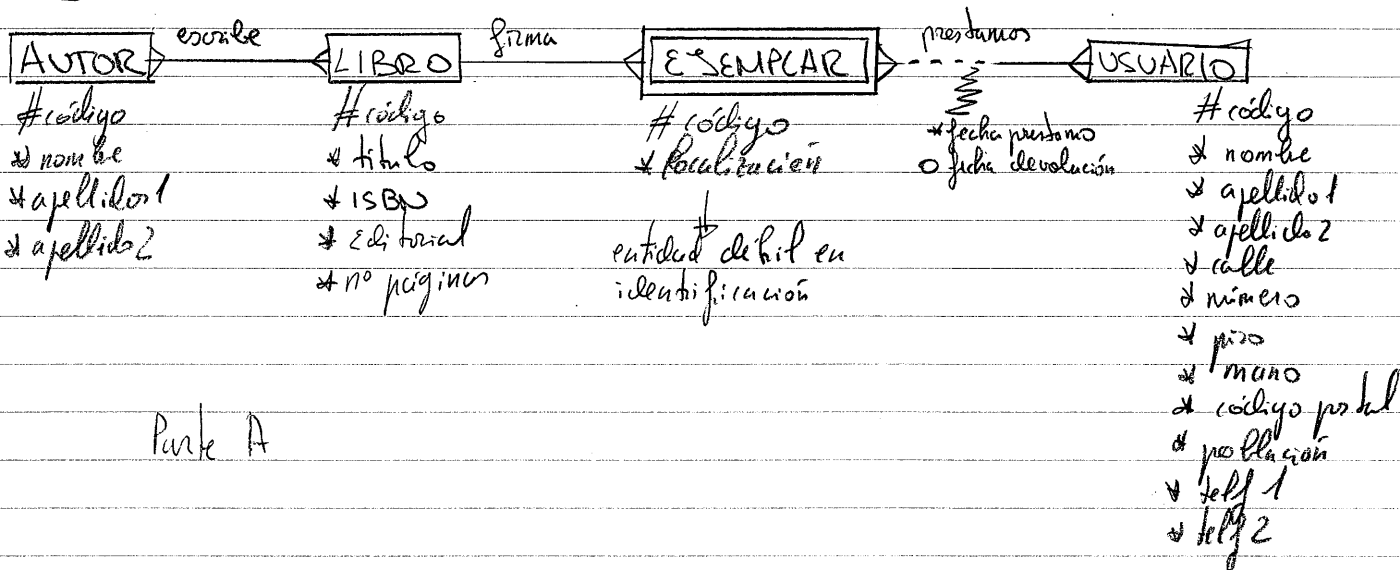 escribe firma prestamos
AUTOR LIBRO EJEMPLAR USUARIO
#código
* nombre
* apellidos1
* apellido2
#código
* titulo
* ISBN
* Editorial
* nº páginas
#código
* localización
entidad débil en
identificación
* fecha prestamo
o fecha devolución
#código
* nombre
* apellido1
* apellido2
* calle
* número
* piso
* mano
* código postal
* población
* telf 1
* telf 2
Parte A